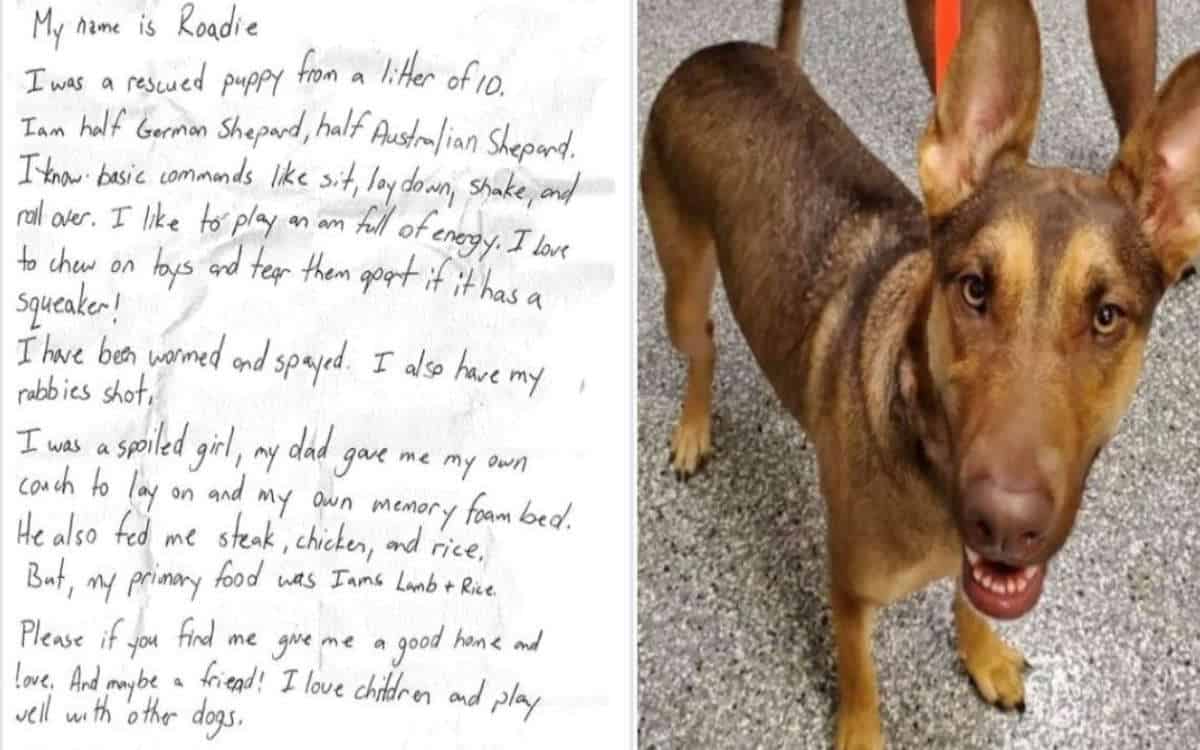 My name is Roadie
I was a rescued puppy from a litter of 10.
I am half German Shepard, half Australian Shepard.
I know basic commands like sit, lay down, shake, and
roll over. I like to play an am full of energy. I love
to chew on toys and tear them apart if it has a
squeaker!
I have been wormed and spayed. I also have my
rabbies shot.
I was a spoiled girl, my dad gave me my own
couch to lay on and my own memory foam bed.
He also fed me steak, chicken, and rice.
But, my primary food was Iams Lamb + Rice.
Please if you find me give me a good home and
love. And maybe a friend! I love children and play
well with other dogs.